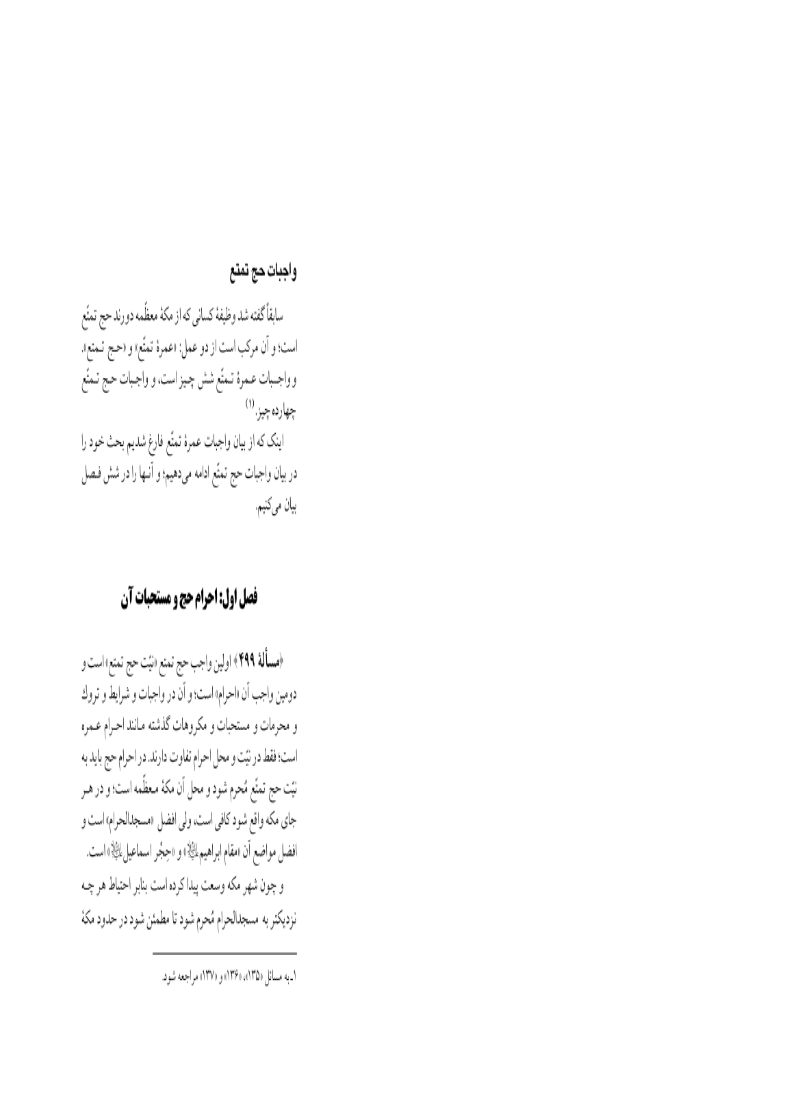 واجبات حج تمتع
سابقاً گفته شد وظیفهٔ کسانی که از مکهٔ معظّمه دورند حج تمتّع
است؛ و آن مرکب است از دو عمل: «عمرهٔ تمتّع» و «حـج تـمتع».
و واجـبات عـمرهٔ تـمتّع شش چـیز است، و واجـبات حـج تـمتّع
چهارده چیز.(۱)
اینک که از بیان واجبات عمرهٔ تمتّع فارغ شدیم بحث خود را
در بیان واجبات حج تمتّع ادامه می‌دهیم؛ و آنـها را در شش فـصل
بیان می‌کنیم.
فصل اول: احرام حج و مستحبات آن
﴿مسألهٔ ۴۹۹﴾ اولین واجب حج تمتع «نیّت حج تمتع» است و
دومین واجب آن «احرام» است؛ و آن در واجبات و شرایط و تروک
و محرمات و مستحبات و مکروهات گذشته مـانند احـرام عـمره
است؛ فقط در نیّت و محل احرام تفاوت دارند. در احرام حج باید به
نیّت حج تمتّع مُحرم شود و محل آن مکهٔ مـعظّمه است؛ و در هـر
جای مکه واقع شود کافی است، ولی افضل «مسجدالحرام» است و
افضل مواضع آن «مقام ابراهیم علیه‌السلام» و «حِجْر اسماعیل علیه‌السلام» است.
و چون شهر مکه وسعت پیدا کرده است بنابر احتیاط هر چـه
نزدیکتر به مسجدالحرام مُحرم شود تا مطمئن شود در حدود مکهٔ
۱ـ به مسائل «۱۳۵»، «۱۳۶» و «۱۳۷» مراجعه شود.